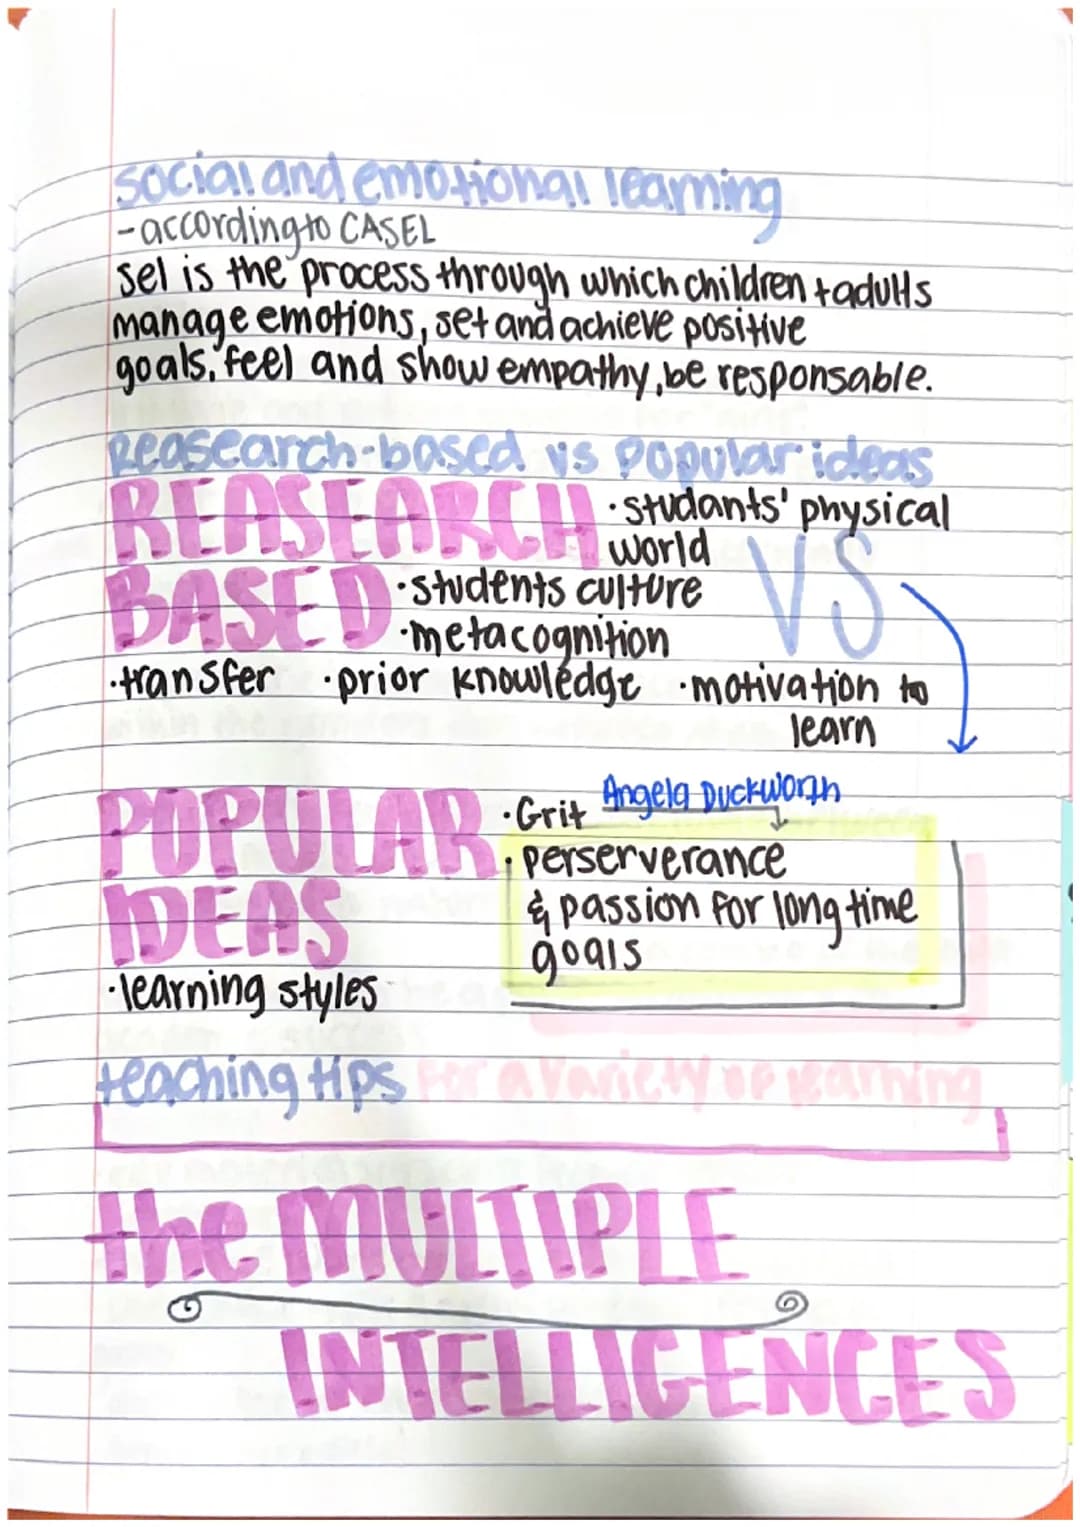 social and emotional learning
- according to CASEL
sel is the process through which children + adults
manage emotions, set and achieve positive
goals, feel and show empathy, be responsable.
Reasearch-based vs Popular ideas
REASEARCH
BASED
• studants' physical
world
• students culture
• metacognition
VS
• transfer • prior knowledge • motivation to
learn
POPULAR
IDEAS
• Grit Angela Duckworth
• perserverance
& passion for long time
goals
• learning styles
teaching tips For a variety of learning
the MULTIPLE
INTELLIGENCES